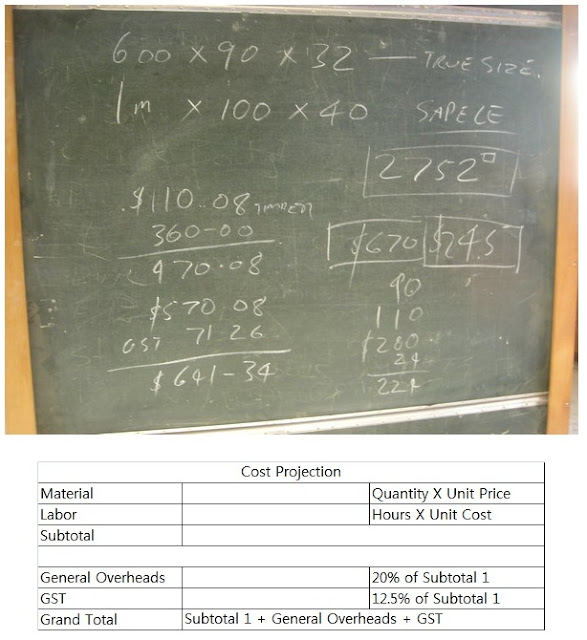 600 x 90 x 32 — TRUE SIZE.
1m x 100 x 40 SAPELE
2752
$110.08 TIMBER
360-00
470.08
$570 08
GST 71 26
$641-34
$670 $245
90
110
$280
24
224
Cost Projection
Material Quantity X Unit Price
Labor Hours X Unit Cost
Subtotal
General Overheads 20% of Subtotal 1
GST 12.5% of Subtotal 1
Grand Total Subtotal 1 + General Overheads + GST